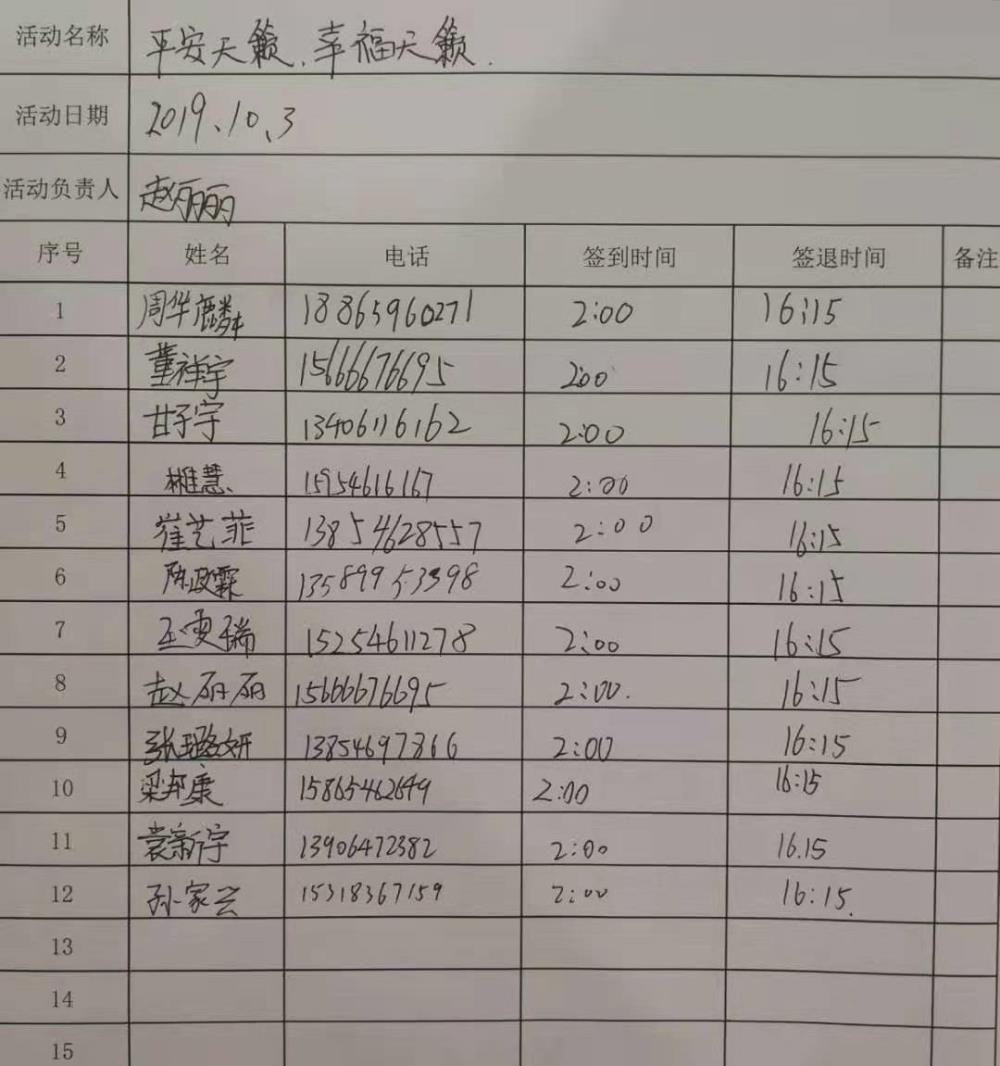 活动名称 平安天籁、幸福天籁.
活动日期 2019、10、3
活动负责人 赵丽丽
序号 姓名 电话 签到时间 签退时间 备注
1 周华麟 18865960271 2:00 16:15
2 董祥宇 15666676695 2:00 16:15
3 甘子宇 13406116162 2:00 16:15
4 15954616167 2:00 16:15
5 崔艺菲 13854628557 2:00 16:15
6 陈政霖 13589953398 2:00 16:15
7 王雯瑞 15254611278 2:00 16:15
8 赵丽丽 15666676695 2:00. 16:15
9 张璐妍 13854697866 2:00 16:15
10 梁邦康 15865462649 2:00 16:15
11 袁新宇 13906472382 2:00 16.15
12 孙家云 15318367159 2:00 16:15.
13
14
15